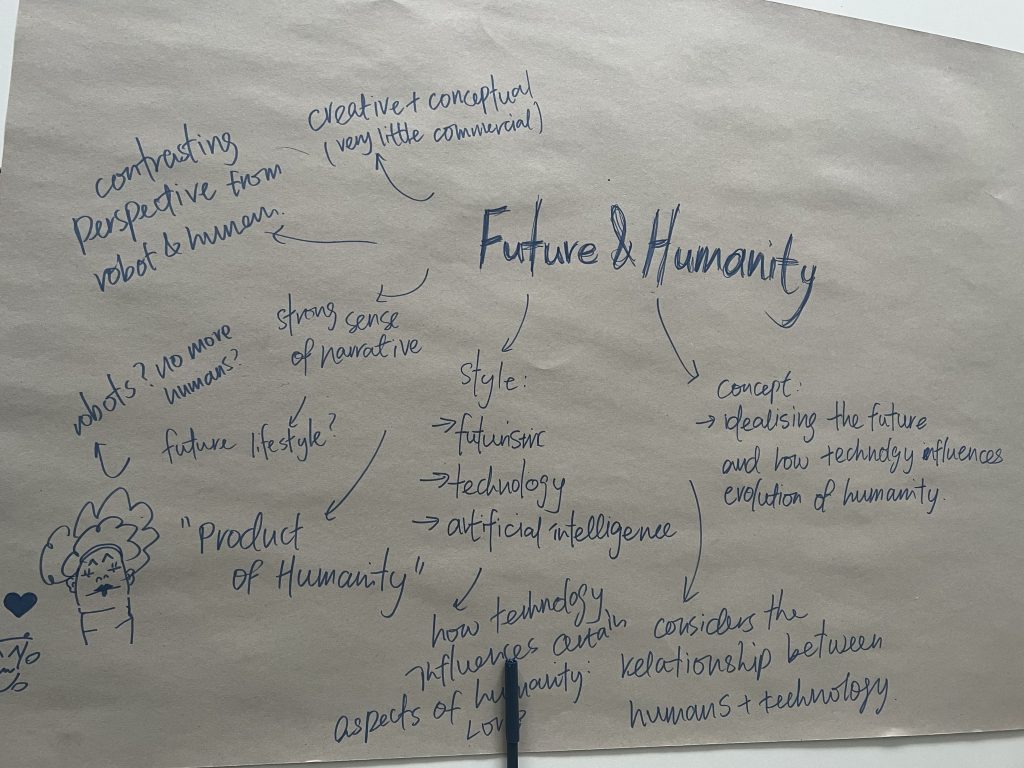 creative + conceptual
(very little commercial)
contrasting
perspective from
robot & human.
Future & Humanity
strong sense
of narrative
robots? no more
humans?
future lifestyle?
"Product
of Humanity"
style:
→ futuristic
→ technology
→ artificial intelligence
how technology
influences certain
aspects of humanity:
concept:
→ idealising the future
and how technology influences
evolution of humanity.
considers the
relationship between
humans + technology.